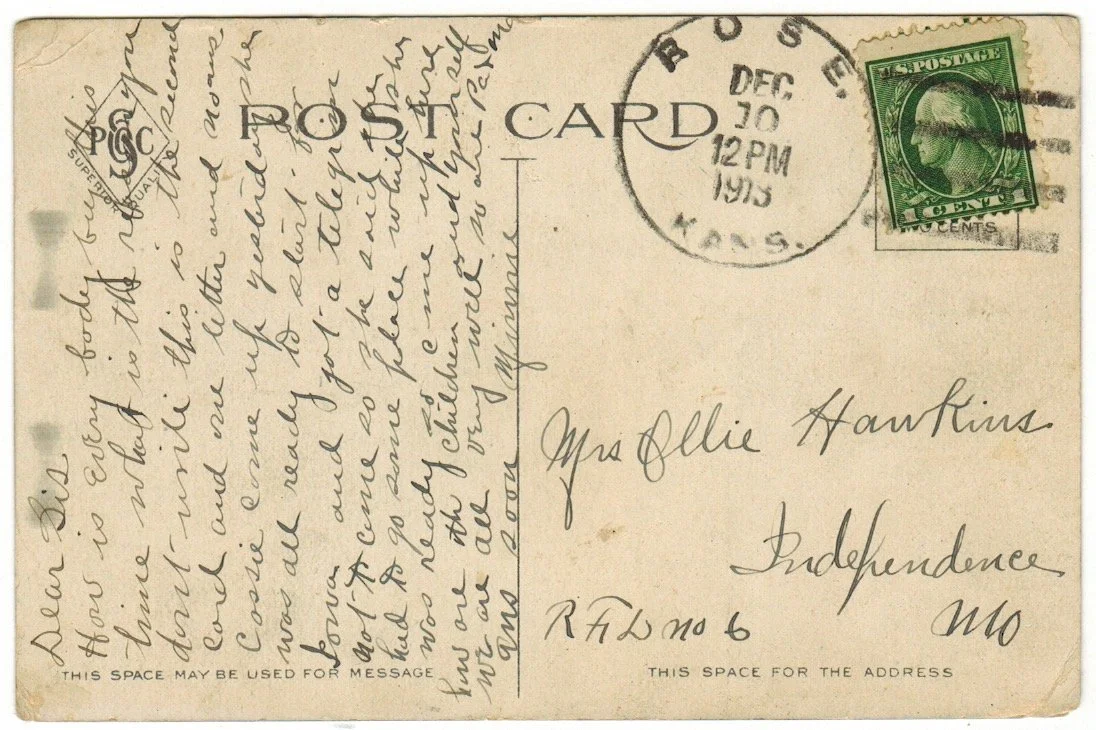 POST CARD
PSC
SUPERIOR QUALITY
ROSE,
DEC
10
12 PM
1913
KANS.
U.S. POSTAGE
1 CENT 1
CENTS
Dear Sis
How is Every body by this
time what is the reason you
dont write this is the second
card and one letter and no ans
Cossie come up yesterday she
was all ready to start for
Iowa and got a telegram
not to come so she said she
had to go some place while she
was ready so come up here
how are the children and yourself
we are all very well so are Pa & ma
ans soon Minnie
Mrs Ollie Hawkins
Independence
RFD no 6 Mo
THIS SPACE MAY BE USED FOR MESSAGE
THIS SPACE FOR THE ADDRESS